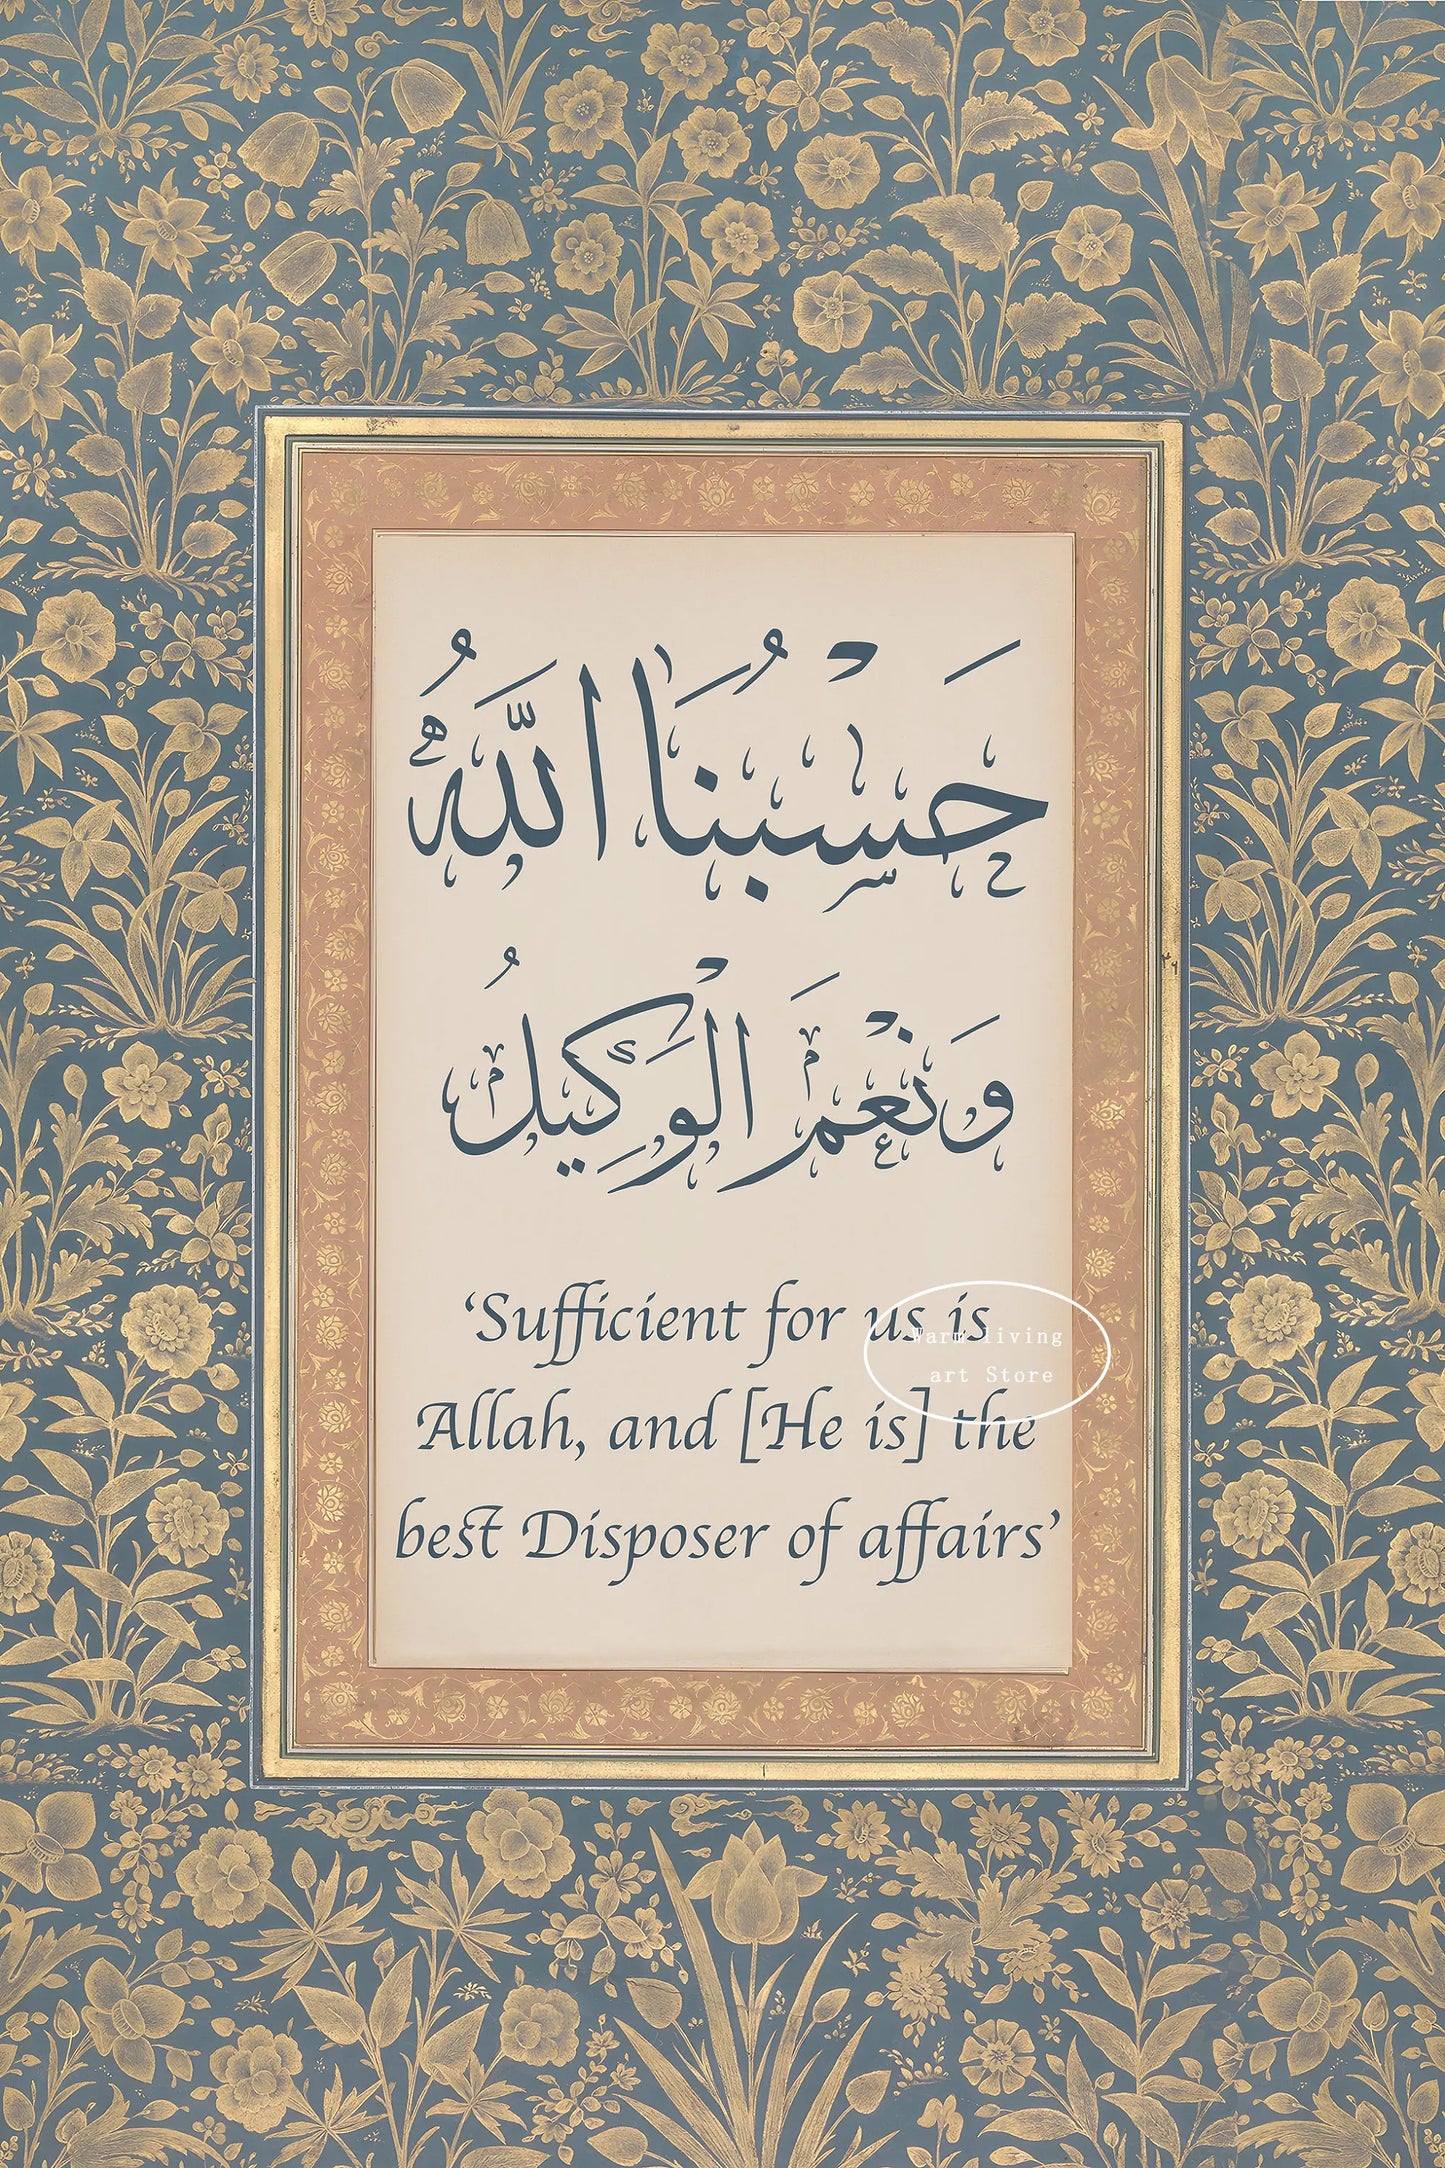 حَسْبُنَا اللَّهُ
وَنْعْمَ الْوَكِيلُ
‘Sufficient for us is
Allah, and [He is] the
best Disposer of affairs’
Warm living
art Store